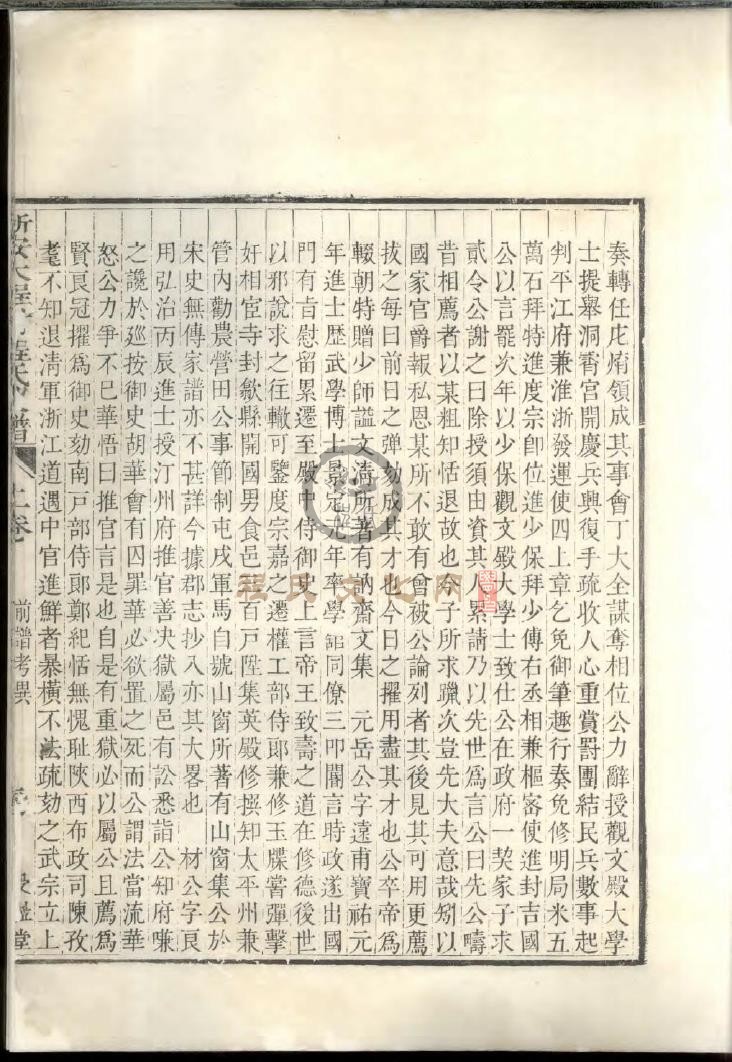 奏轉任庀𤸷領成其事會丁大全謀奪相位公力辭授觀文殿大學
士提舉洞霄宮開慶兵興復手疏收人心重賞罸團結民兵數事起
判平江府兼淮浙發運使四上章乞免御筆趣行奏免修明局米五
萬石拜特進度宗卽位進少保拜少傅右丞相兼樞宻使進封吉國
公以言罷次年以少保觀文殿大學士致仕公在政府一契家子求
貳令公謝之曰除授須由資其人累請乃以先世爲言公曰先公疇
昔相薦者以某粗知恬退故也今子所求躐次豈先大夫意哉矧以
國家官爵報私恩某所不敢有曾被公論列者其後見其可用更薦
拔之每曰前日之彈劾成其才也今日之擢用盡其才也公卒帝爲
輟朝特贈少師謚文清所著有訥齋文集 元岳公字遠甫寶祐元
年進士歴武學博士景定 年率學館同僚三叩閽言時政遂出國
門有旨慰留累遷至殿中侍御史上言帝王致壽之道在修德後世
以邪說求之往轍可鑒度宗嘉之遷權工部侍郎兼修玉牒嘗彈擊
奸相宦寺封歙縣開國男食邑 百戸陞集英殿修撰知太平州兼
管內勸農營田公事節制屯戍軍馬自號山窗所著有山窗集公於
宋史無傳家譜亦不甚詳今據郡志抄入亦其大畧也 材公字良
用弘治丙辰進士授汀州府推官善决獄屬邑有訟悉詣公知府嗛
之讒於廵按御史胡華會有囚罪華必欲置之死而公謂法當流華
怒公力爭不已華悟曰推官言是也自是有重獄必以屬公且薦爲
賢良冠擢爲御史劾南戸部侍郎鄭紀恬無愧耻陝西布政司陳孜
耄不知退淸軍浙江道遇中官進鮮者暴橫不法疏劾之武宗立上
新安大程 程氏 譜 上卷 前譜考異 堂
程氏文化网